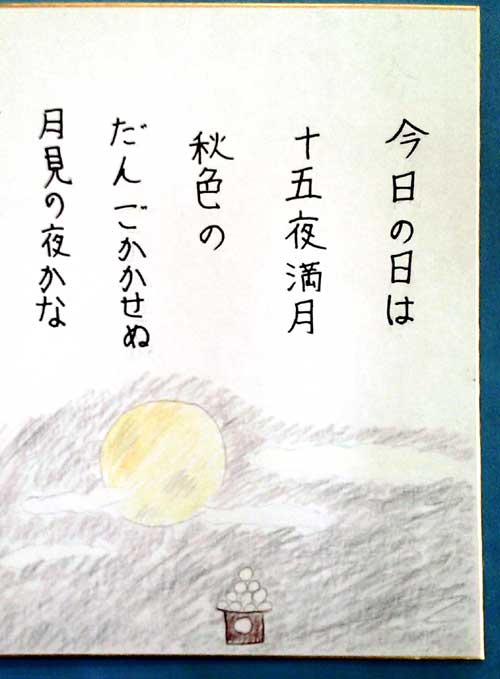 今日の日は
十五夜満月
秋色の
だんごかかせぬ
月見の夜かな